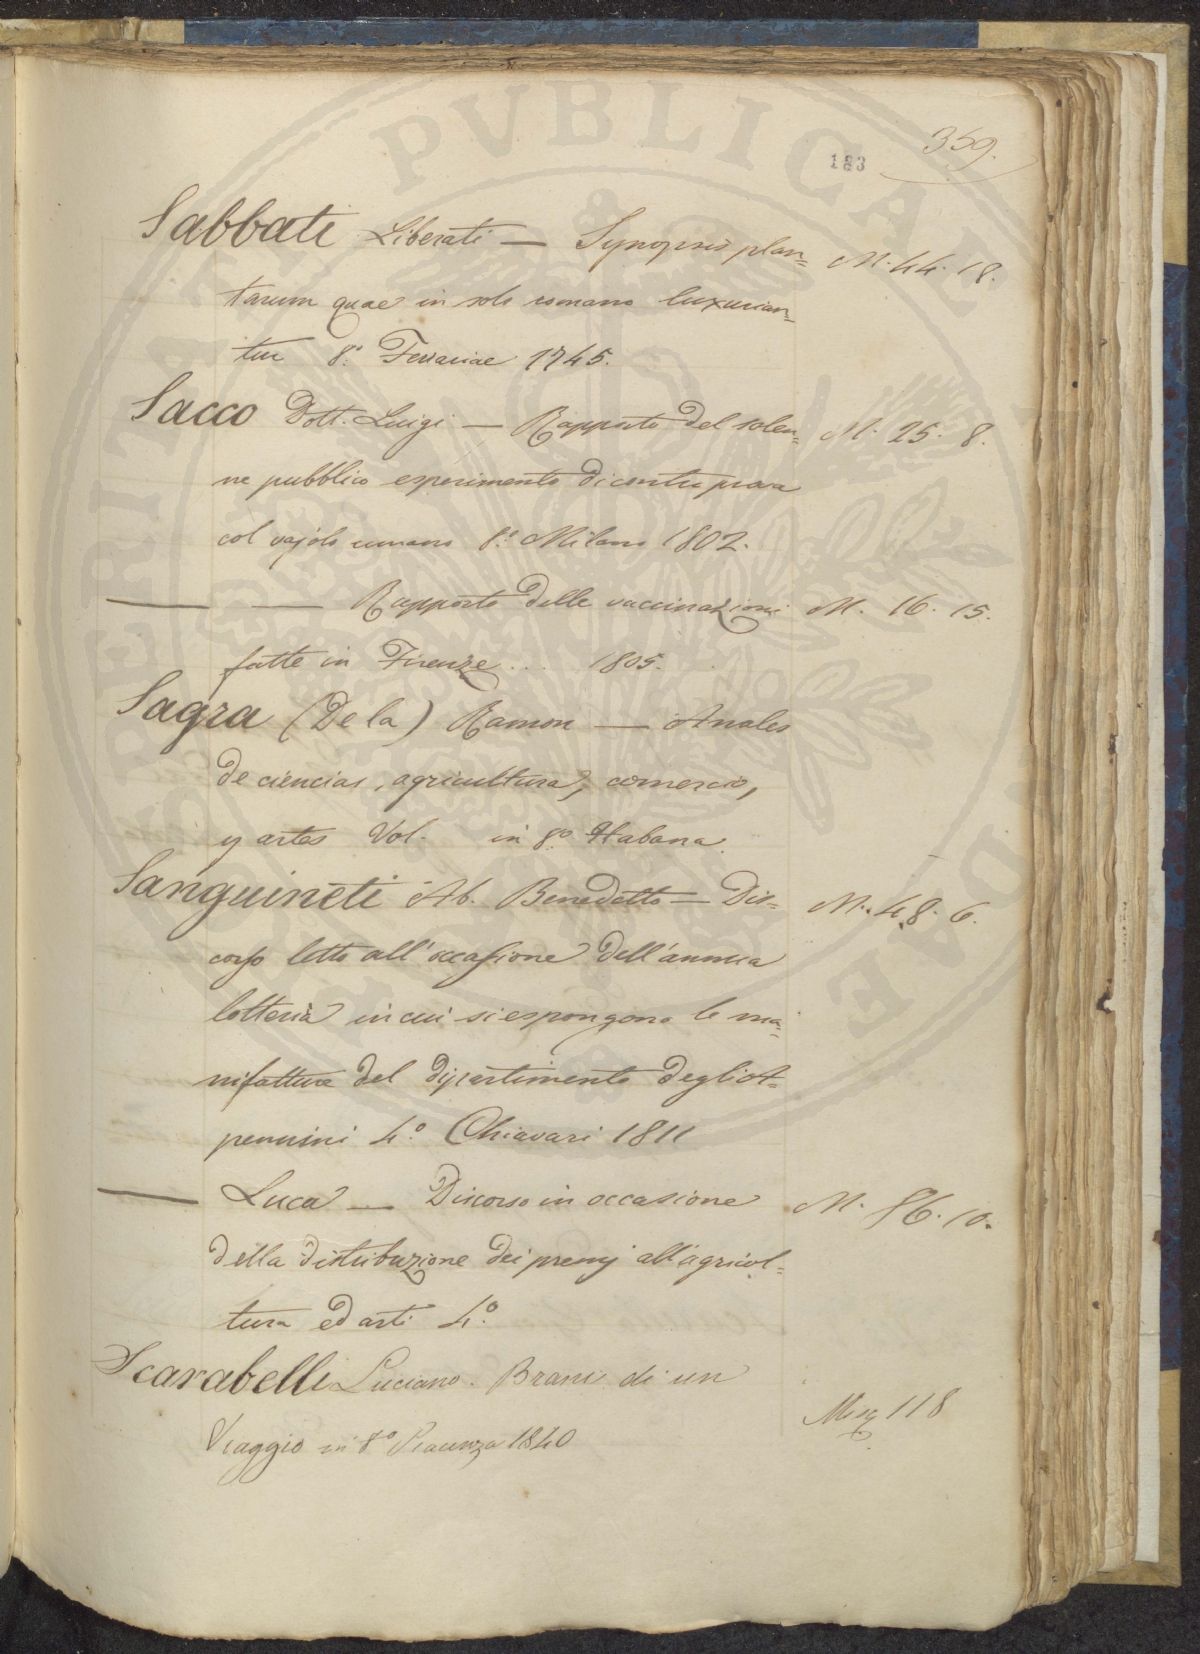 359.
183
Sabbati Liberati — Synopsis plan= M. 44. 18.
tarum quae in solo romano luxurian=
tur 8.° Ferrariae 1745.
Sacco Dott. Luigi — Rapporto del solen= M. 25. 8.
ne pubblico esperimento di contro prova
col vajolo umano 8.° Milano 1802.
— — Rapporto delle vaccinazioni M. 16. 15.
fatte in Firenze... 1805.
Sagra (De la) Ramon — Anales
de ciencias, agricultura, comercio,
y artes Vol. in 8.° Habana.
Sanguineti Ab. Benedetto — Dis= M. 48. 6.
corso letto all'occasione dell'annua
lotteria in cui si espongono le ma=
nifatture del dipartimento degli A=
pennini 4.° Chiavari 1811
— Luca — Discorso in occasione M. 86. 10.
della distribuzione dei premj all'agricol=
tura ed arti 4.°
Scarabelli Luciano. Brani di un
Viaggio in 8.° Piacenza 1840 Misc 118